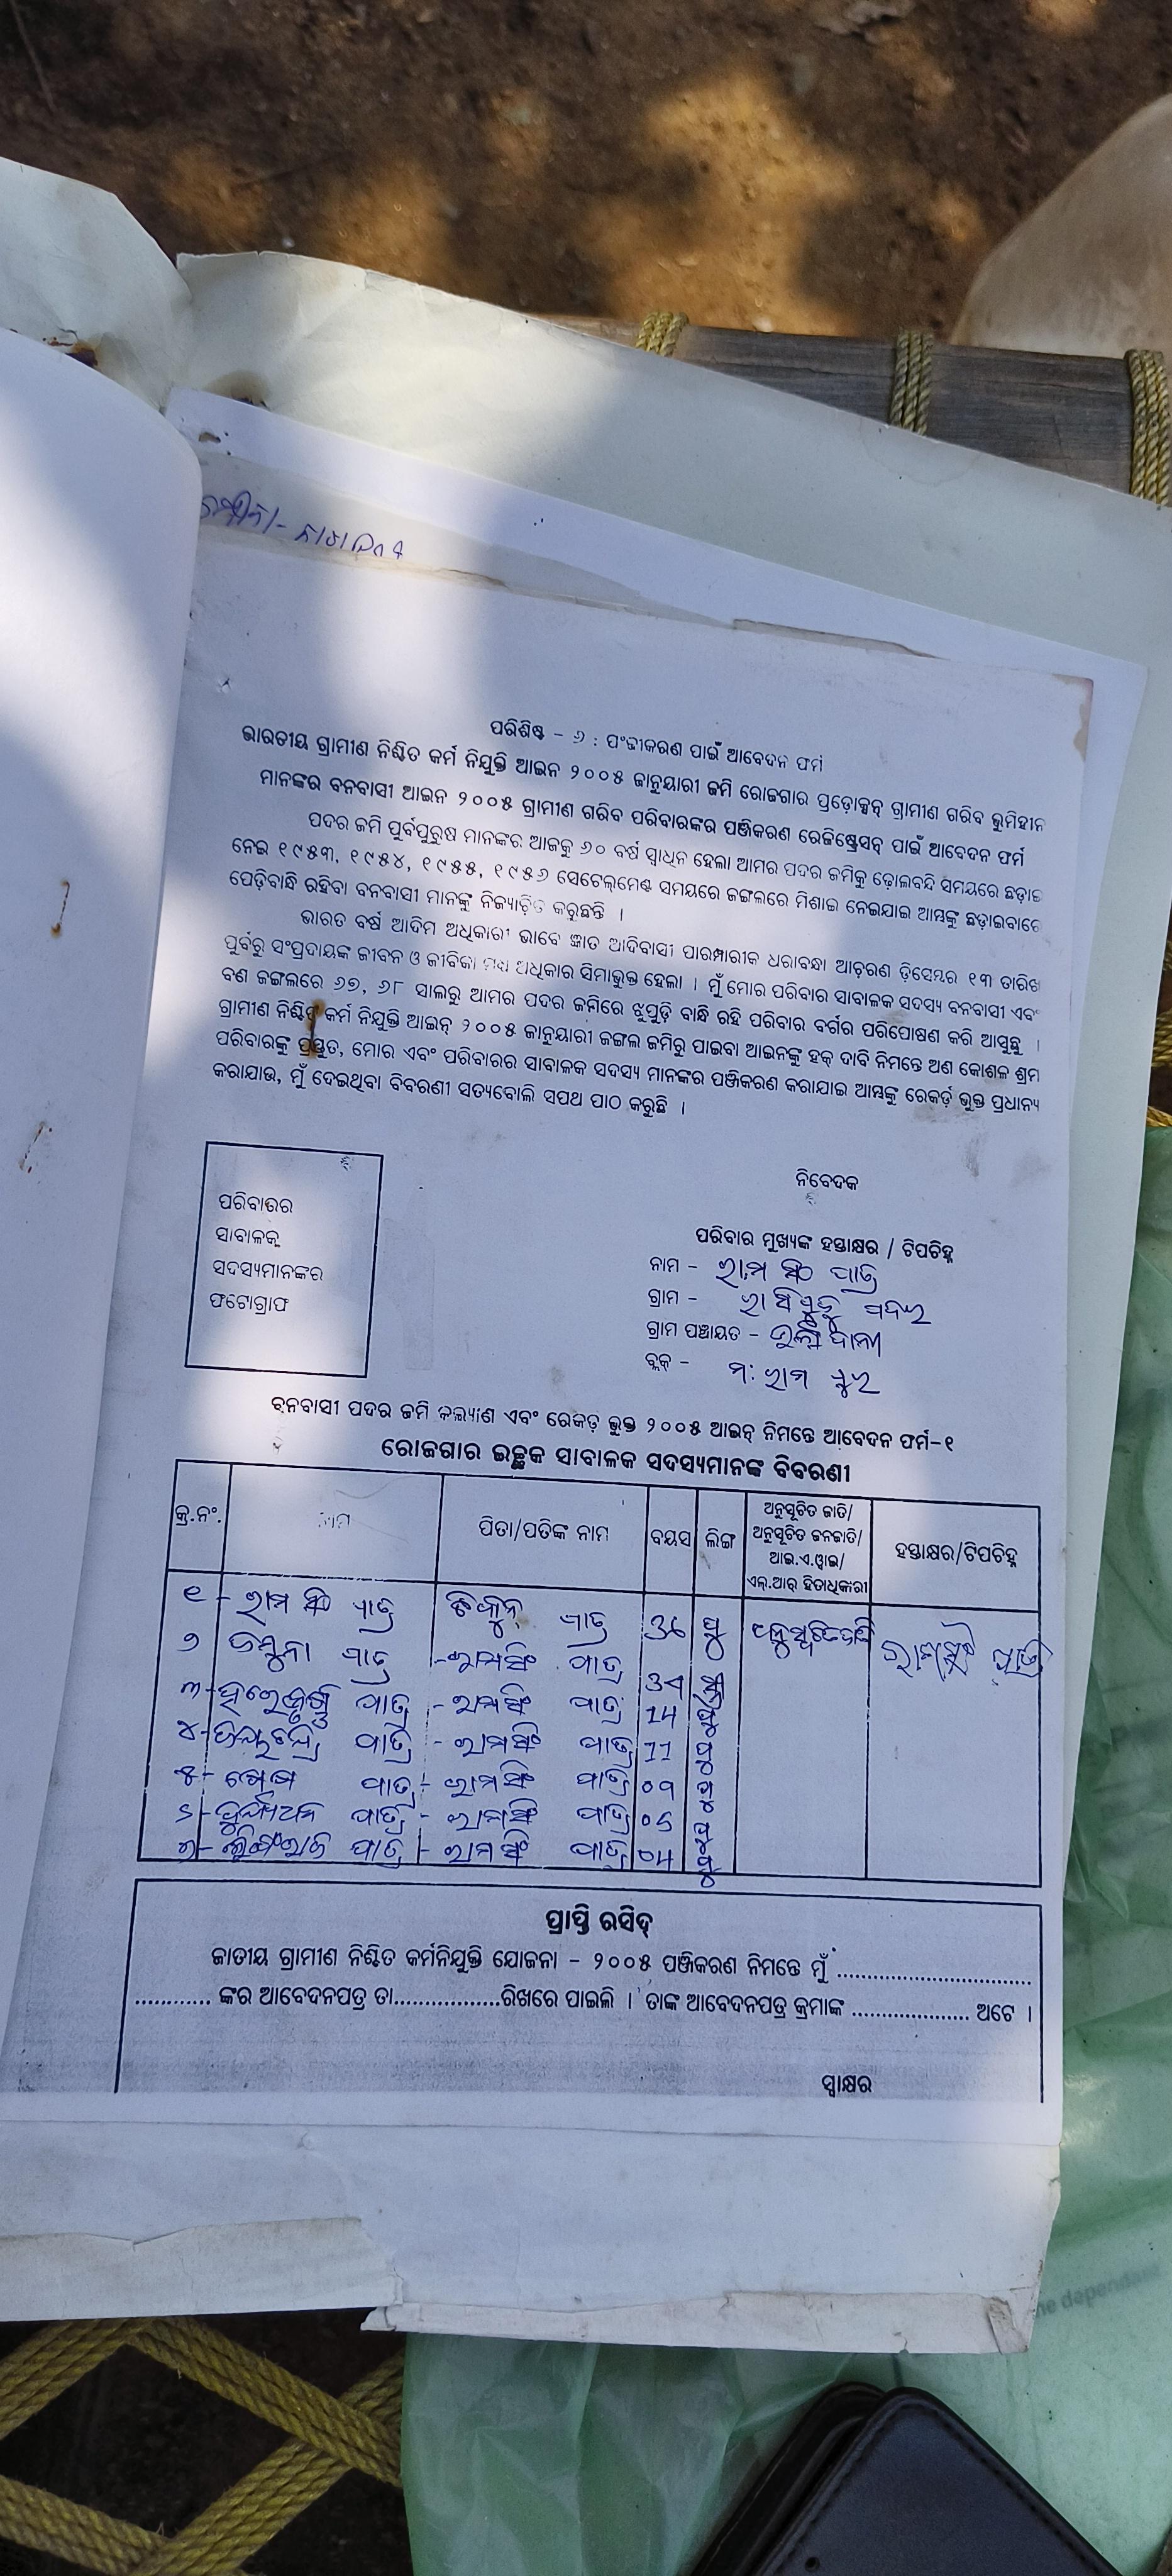 ପରିଶିଷ୍ଟ - ୬ : ପଂଜୀକରଣ ପାଇଁ ଆବେଦନ ଫର୍ମ
ଭାରତୀୟ ଗ୍ରାମୀଣ ନିଶ୍ଚିତ କର୍ମ ନିଯୁକ୍ତି ଆଇନ ୨୦୦୫ ଜାନୁୟାରୀ ଜମି ରୋଜଗାର ପ୍ରଡ଼ୋକ୍ସନ୍ ଗ୍ରାମୀଣ ଗରିବ ଭୁମିହୀନ
ମାନଙ୍କର ବନବାସୀ ଆଇନ ୨୦୦୫ ଗ୍ରାମୀଣ ଗରିବ ପରିବାରଙ୍କର ପଞ୍ଜିକରଣ ରେଜିଷ୍ଟ୍ରେସନ୍ ପାଇଁ ଆବେଦନ ଫର୍ମ
ପଦର ଜମି ପୁର୍ବପୁରୁଷ ମାନଙ୍କର ଆଜକୁ ୬୦ ବର୍ଷ ସ୍ୱାଧିନ ହେଲା ଆମର ପଦର ଜମିକୁ ଢ଼ୋଲବନ୍ଦି ସମୟରେ ଛଡ଼ାଇ
ନେଇ ୧୯୫୩, ୧୯୫୪, ୧୯୫୫, ୧୯୫୬ ସେଟେଲ୍‌ମେଣ୍ଟ ସମୟରେ ଜଙ୍ଗଲରେ ମିଶାଇ ନେଇଯାଇ ଆମ୍ଭଙ୍କୁ ଛଡ଼ାଇବାରେ
ପେଡ଼ିବାନ୍ଧି ରହିବା ବନବାସୀ ମାନଙ୍କୁ ନିଜ୍ୟାଡ଼ିତ କରୁଛନ୍ତି ।
ଭାରତ ବର୍ଷ ଆଦିମ ଅଧିକାରୀ ଭାବେ ଜ୍ଞାତ ଆଦିବାସୀ ପାରମ୍ପାରୀକ ଧରାବନ୍ଧା ଆଚ଼ରଣ ଡ଼ିସେମ୍ବର ୧୩ ତାରିଖ
ପୁର୍ବରୁ ସଂପ୍ରଦାୟଙ୍କ ଜୀବନ ଓ ଜୀବିକା ଅଧିକାର ସିମାଭୁକ୍ତ ହେଲା । ମୁଁ ମୋର ପରିବାର ସାବାଳକ ସଦସ୍ୟ ବନବାସୀ ଏବଂ
ବଣ ଜଙ୍ଗଲରେ ୬୭, ୬୮ ସାଲରୁ ଆମର ପଦର ଜମିରେ ଝୁପୁଡ଼ି ବାନ୍ଧି ରହି ପରିବାର ବର୍ଗର ପରିପୋଷଣ କରି ଆସୁଛୁ ।
ଗ୍ରାମୀଣ ନିଶ୍ଚିତ କର୍ମ ନିଯୁକ୍ତି ଆଇନ୍ ୨୦୦୫ ଜାନୁୟାରୀ ଜଙ୍ଗଲ ଜମିରୁ ପାଇବା ଆଇନଙ୍କୁ ହକ୍ ଦାବି ନିମନ୍ତେ ଅଣ କୋଶଳ ଶ୍ରମ
ପରିବାରଙ୍କୁ ପ୍ରସ୍ତୁତ, ମୋର ଏବଂ ପରିବାରର ସାବାଳକ ସଦସ୍ୟ ମାନଙ୍କର ପଞ୍ଜିକରଣ କରାଯାଇ ଆମ୍ଭଙ୍କୁ ରେକର୍ଡ଼ ଭୁକ୍ତ ପ୍ରଧାନ୍ୟ
କରାଯାଉ, ମୁଁ ଦେଇଥିବା ବିବରଣୀ ସତ୍ୟବୋଲି ସପଥ ପାଠ କରୁଛି ।
ନିବେଦକ
ପରିବାରର
ସାବାଳକ୍
ସଦସ୍ୟମାନଙ୍କର
ଫଟୋଗ୍ରାଫ
ପରିବାର ମୁଖ୍ୟଙ୍କ ହସ୍ତାକ୍ଷର / ଟିପଚିହ୍ନ
ନାମ - ରାମ ସିଂ ପାତ୍ର
ଗ୍ରାମ - ପଦର
ଗ୍ରାମ ପଞ୍ଚାୟତ -
ବ୍ଲକ୍ - ମ: ରାମ ପୁର
ବନବାସୀ ପଦର ଜମି କଲ୍ୟାଣ ଏବଂ ରେକର୍ଡ଼ ଭୁକ୍ତ ୨୦୦୫ ଆଇନ୍ ନିମନ୍ତେ ଆବେଦନ ଫର୍ମ-୧
ରୋଜଗାର ଇଚ୍ଛୁକ ସାବାଳକ ସଦସ୍ୟମାନଙ୍କ ବିବରଣୀ
କ୍ର.ନଂ. ନାମ ପିତା/ପତିଙ୍କ ନାମ ବୟସ ଲିଙ୍ଗ ଅନୁସୂଚିତ ଜାତି/ ଅନୁସୂଚିତ ଜନଜାତି/ ଆଇ.ଏ.ୱାଇ/ ଏଲ୍.ଆର୍ ହିତାଧିକାରୀ ହସ୍ତାକ୍ଷର/ଟିପଚିହ୍ନ
୧ - ରାମ ସିଂ ପାତ୍ର ପାତ୍ର 36 ପୁ ରାମସିଂ ପାତ୍ର
୨ ଯମୁନା ପାତ୍ର - ରାମସିଂ ପାତ୍ର 34 ସ୍ତ୍ରୀ
୩ - ପାତ୍ର - ରାମସିଂ ପାତ୍ର 14 ପୁ
୪ - ପାତ୍ର - ରାମସିଂ ପାତ୍ର 11 ପୁ
୫ - ପାତ୍ର - ରାମସିଂ ପାତ୍ର ପୁ
୬ - ପାତ୍ର - ରାମସିଂ ପାତ୍ର ପୁ
୭ - ପାତ୍ର - ରାମସିଂ ପାତ୍ର 04 ପୁ
ପ୍ରାପ୍ତି ରସିଦ୍
ଜାତୀୟ ଗ୍ରାମୀଣ ନିଶ୍ଚିତ କର୍ମନିଯୁକ୍ତି ଯୋଜନା - ୨୦୦୫ ପଞ୍ଜିକରଣ ନିମନ୍ତେ ମୁଁ ..............................
............ ଙ୍କର ଆବେଦନପତ୍ର ତା.................ରିଖରେ ପାଇଲି । ତାଙ୍କ ଆବେଦନପତ୍ର କ୍ରମାଙ୍କ ................... ଅଟେ ।
ସ୍ୱାକ୍ଷର